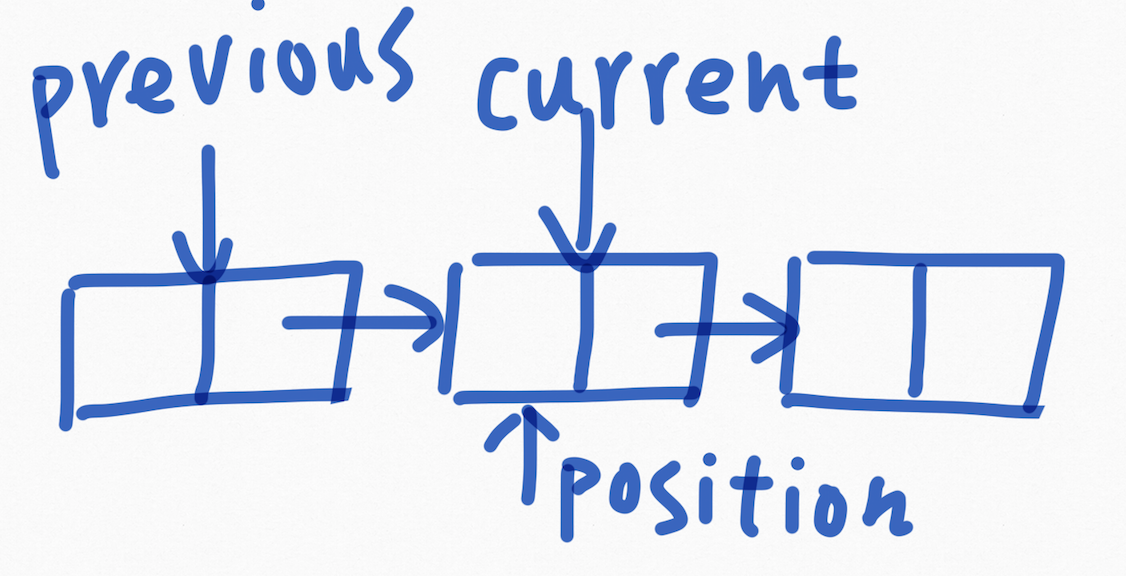 previous current
position